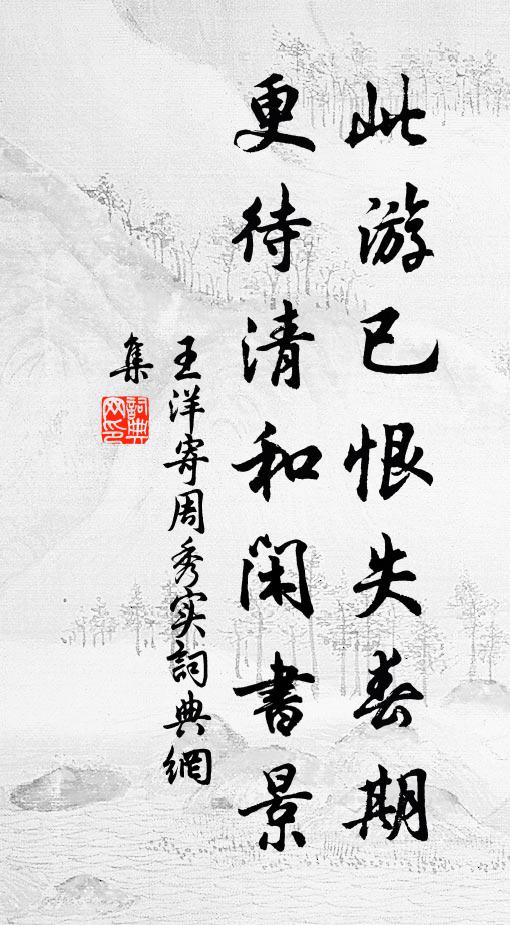 此游已恨失春期
更待清和闲書景
王洋寄周秀实詞典網
集
詞典网印